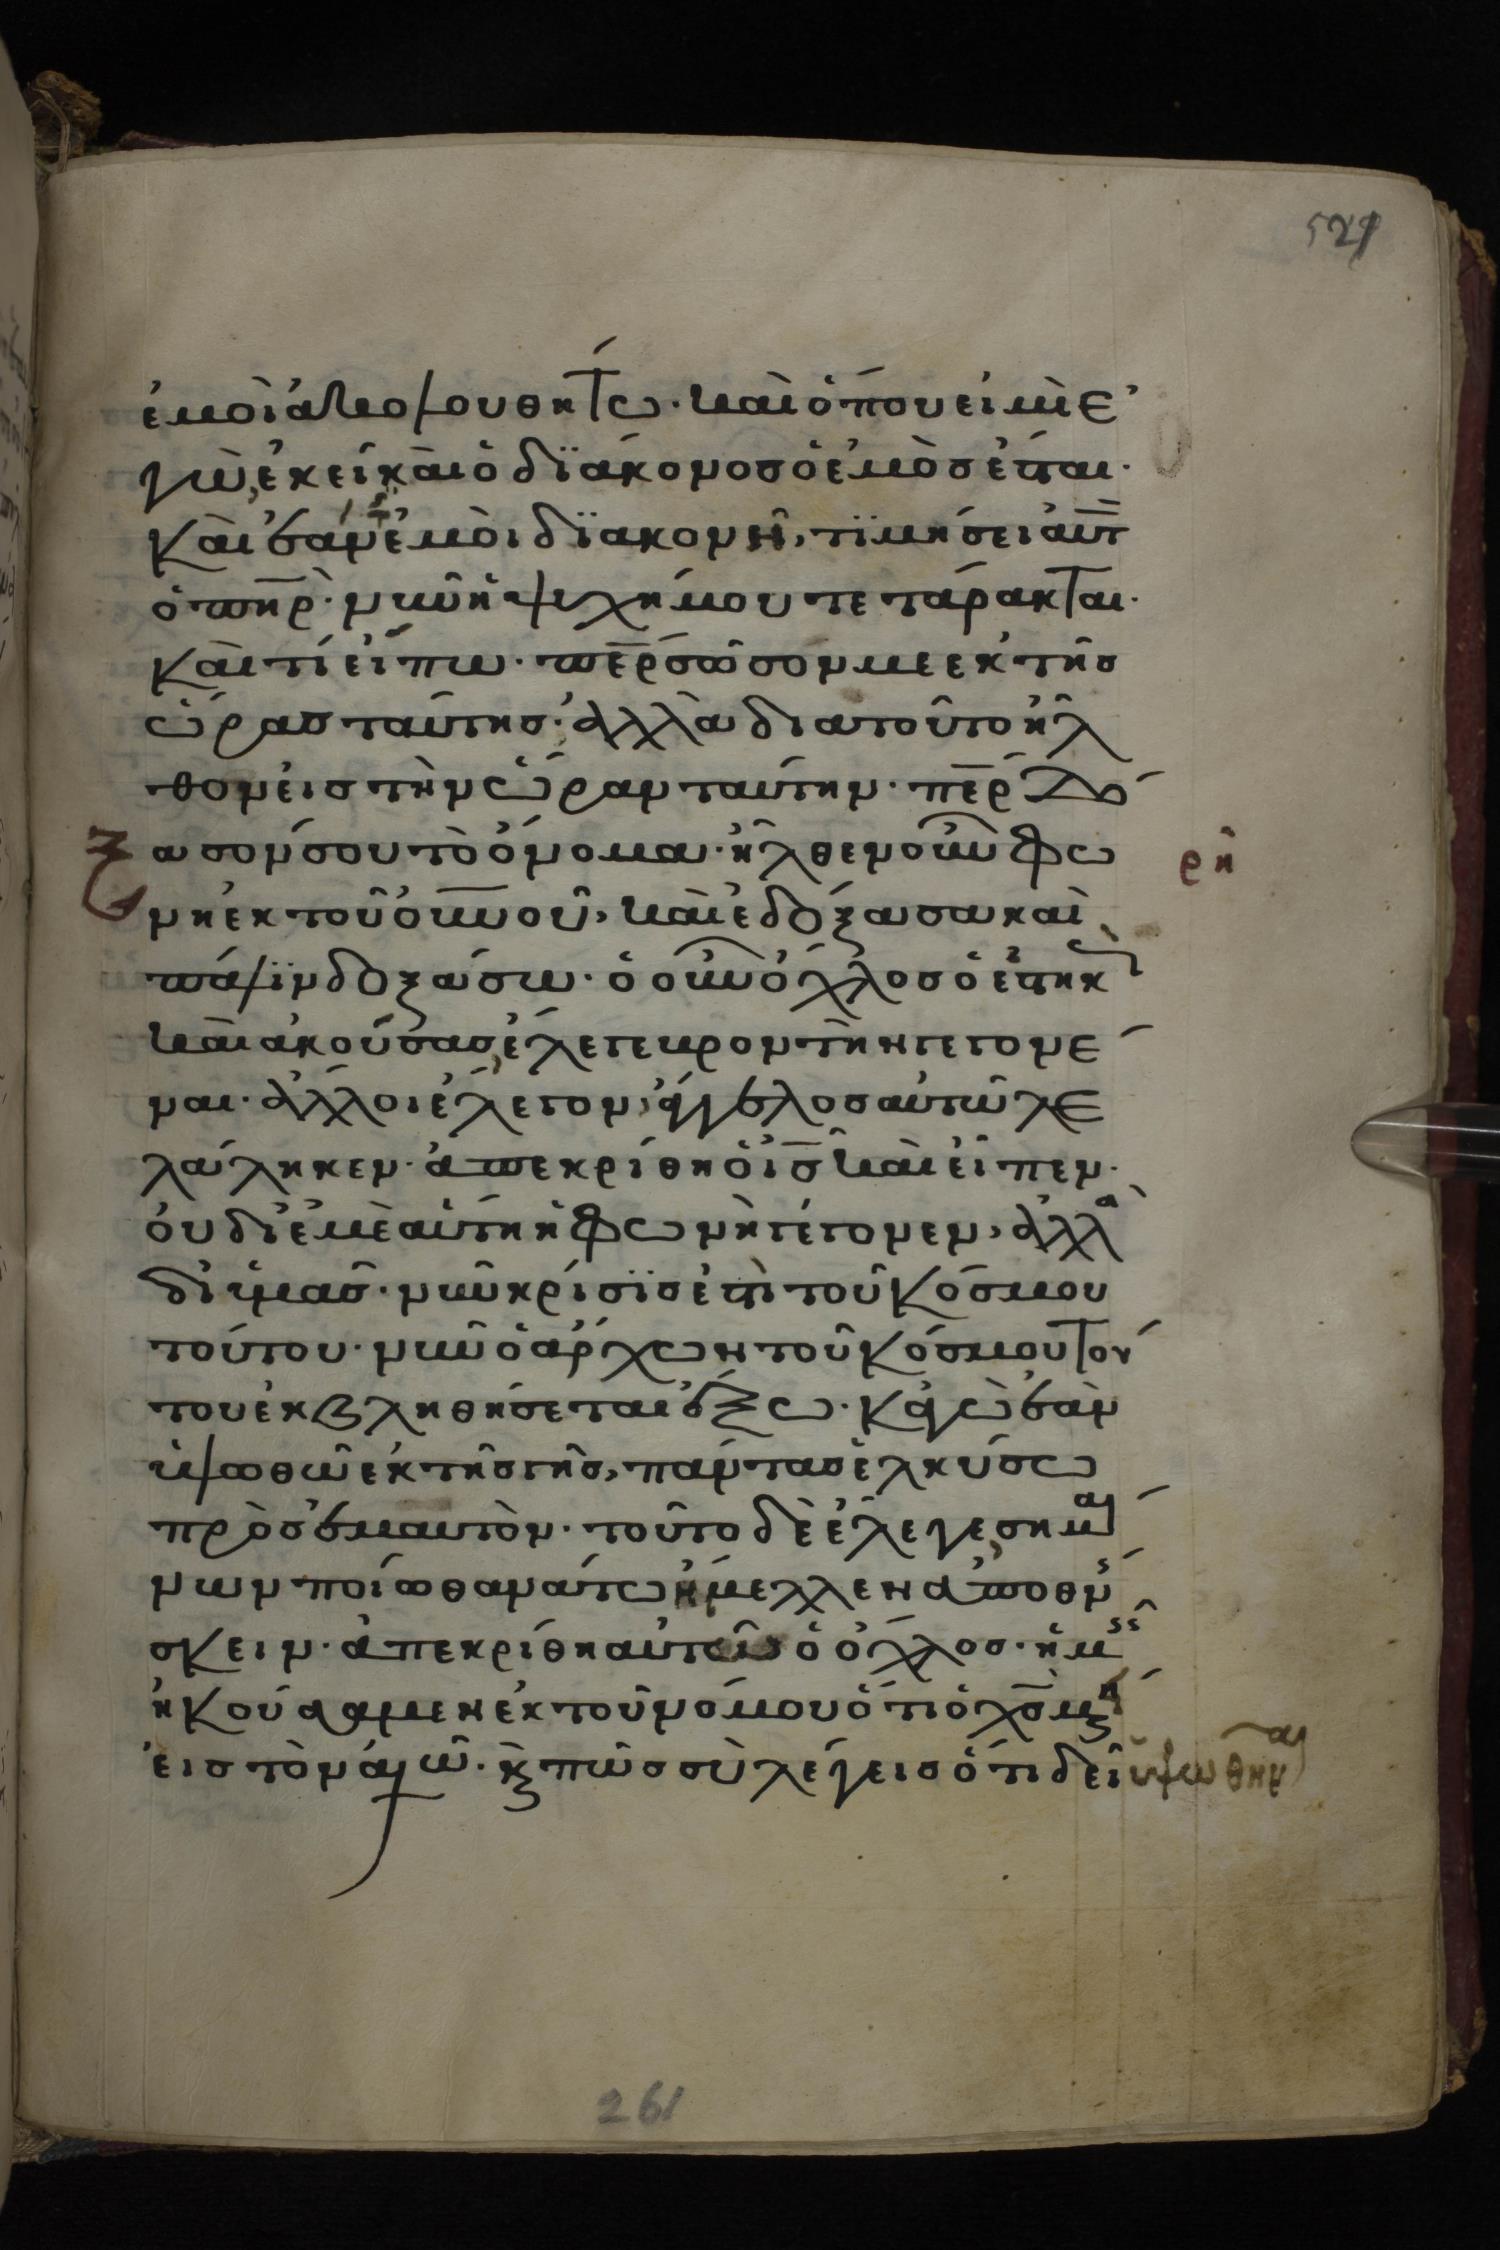 521
ἐμοὶ ἀκολουθήτω· καὶ ὅπου εἰμὶ ἐ
γὼ, ἐκεῖ καὶ ὁ διάκονος ὁ ἐμὸς ἔσται·
καὶ ἐάν τις ἐμοὶ διακονῆ, τιμήσει αὐτ
ὁ πηρ̅· νῦν ἡ ψυχή μου τετάρακται·
καὶ τί εἴπω· περ̅ σῶσόν με ἐκ τῆς
ὥρας ταύτης· ἀλλὰ διατοῦτο ἦλ
θον εἰς τὴν ὥραν ταύτην· περ̅ δό
ξασόν σου τὸ ὄνομα· ἦλθεν οὖν φω
ρη
νὴ ἐκ τοῦ οὐνοῦ, καὶ ἐδόξασα καὶ
πάλιν δοξάσω· ὁ οὖν ὄχλος ὁ ἑστηκ
καὶ ἀκούσας, ἔλεγε βροντὴν γεγονέ
ναι· ἄλλοι ἔλεγον, ἄγγελος αὐτῶ λε
λάληκεν· ἀπεκρίθη ὁ ις̅ καὶ εἶπεν·
οὐ δι ἐμὲ αὕτη ἡ φωνὴ γέγονεν, ἀλλὰ
δι ὑμᾶς· νῦν κρίσις ἐστὶ τοῦ κόσμου
τούτου· νῦν ὁ ἄρχων τοῦ κόσμου τού
του ἐκβληθήσεται ἔξω· κἀγὼ ἐὰν
ὑψωθῶ ἐκ τῆς γῆς, πάντας ἑλκύσω
πρὸς ἐμαυτόν· τοῦτο δὲ ἔλεγε, σημαί
νων ποίω θανάτω ἤμελλεν ἀποθνή
σκειν· ἀπεκρίθη αὐτῶ ὁ ὄχλος· ἡμεῖς
ἠκούσαμεν ἐκ τοῦ νόμου ὅτι ὁ χς̅ μέν
εἰς τὸν αἰῶ· κ πῶς σὺ λέγεις ὅτι δεῖ ὑψωθῆναι
261